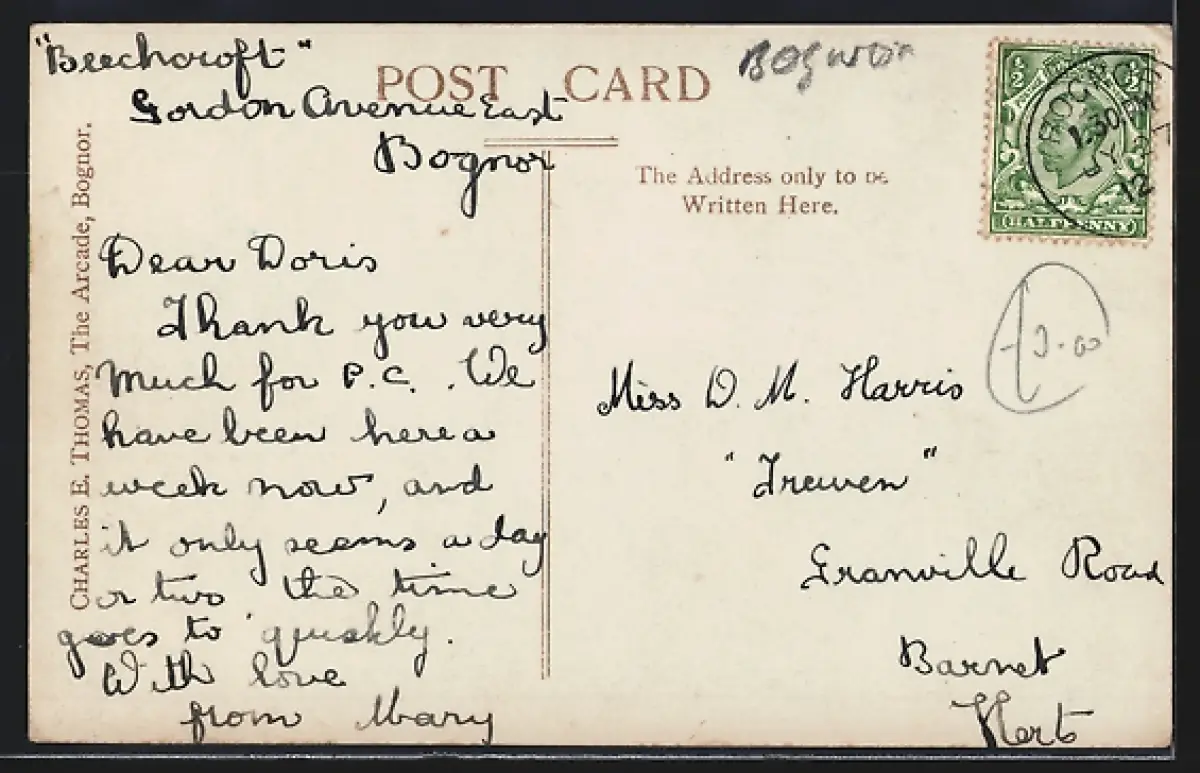 "Beechcroft"
Gordon Avenue East
Bognor
POST CARD
Bognor
CHARLES E. THOMAS, The Arcade, Bognor.
Dear Doris
Thank you very
much for P.C. . We
have been here a
week now, and
it only seems a day
or two the time
goes to quickly.
With love
from Mary
The Address only to be
Written Here.
½ ½
BOGNOR
1.30 PM
12
HALFPENNY
Miss D. M. Harris
"Trewen"
Granville Road
Barnet
Herts